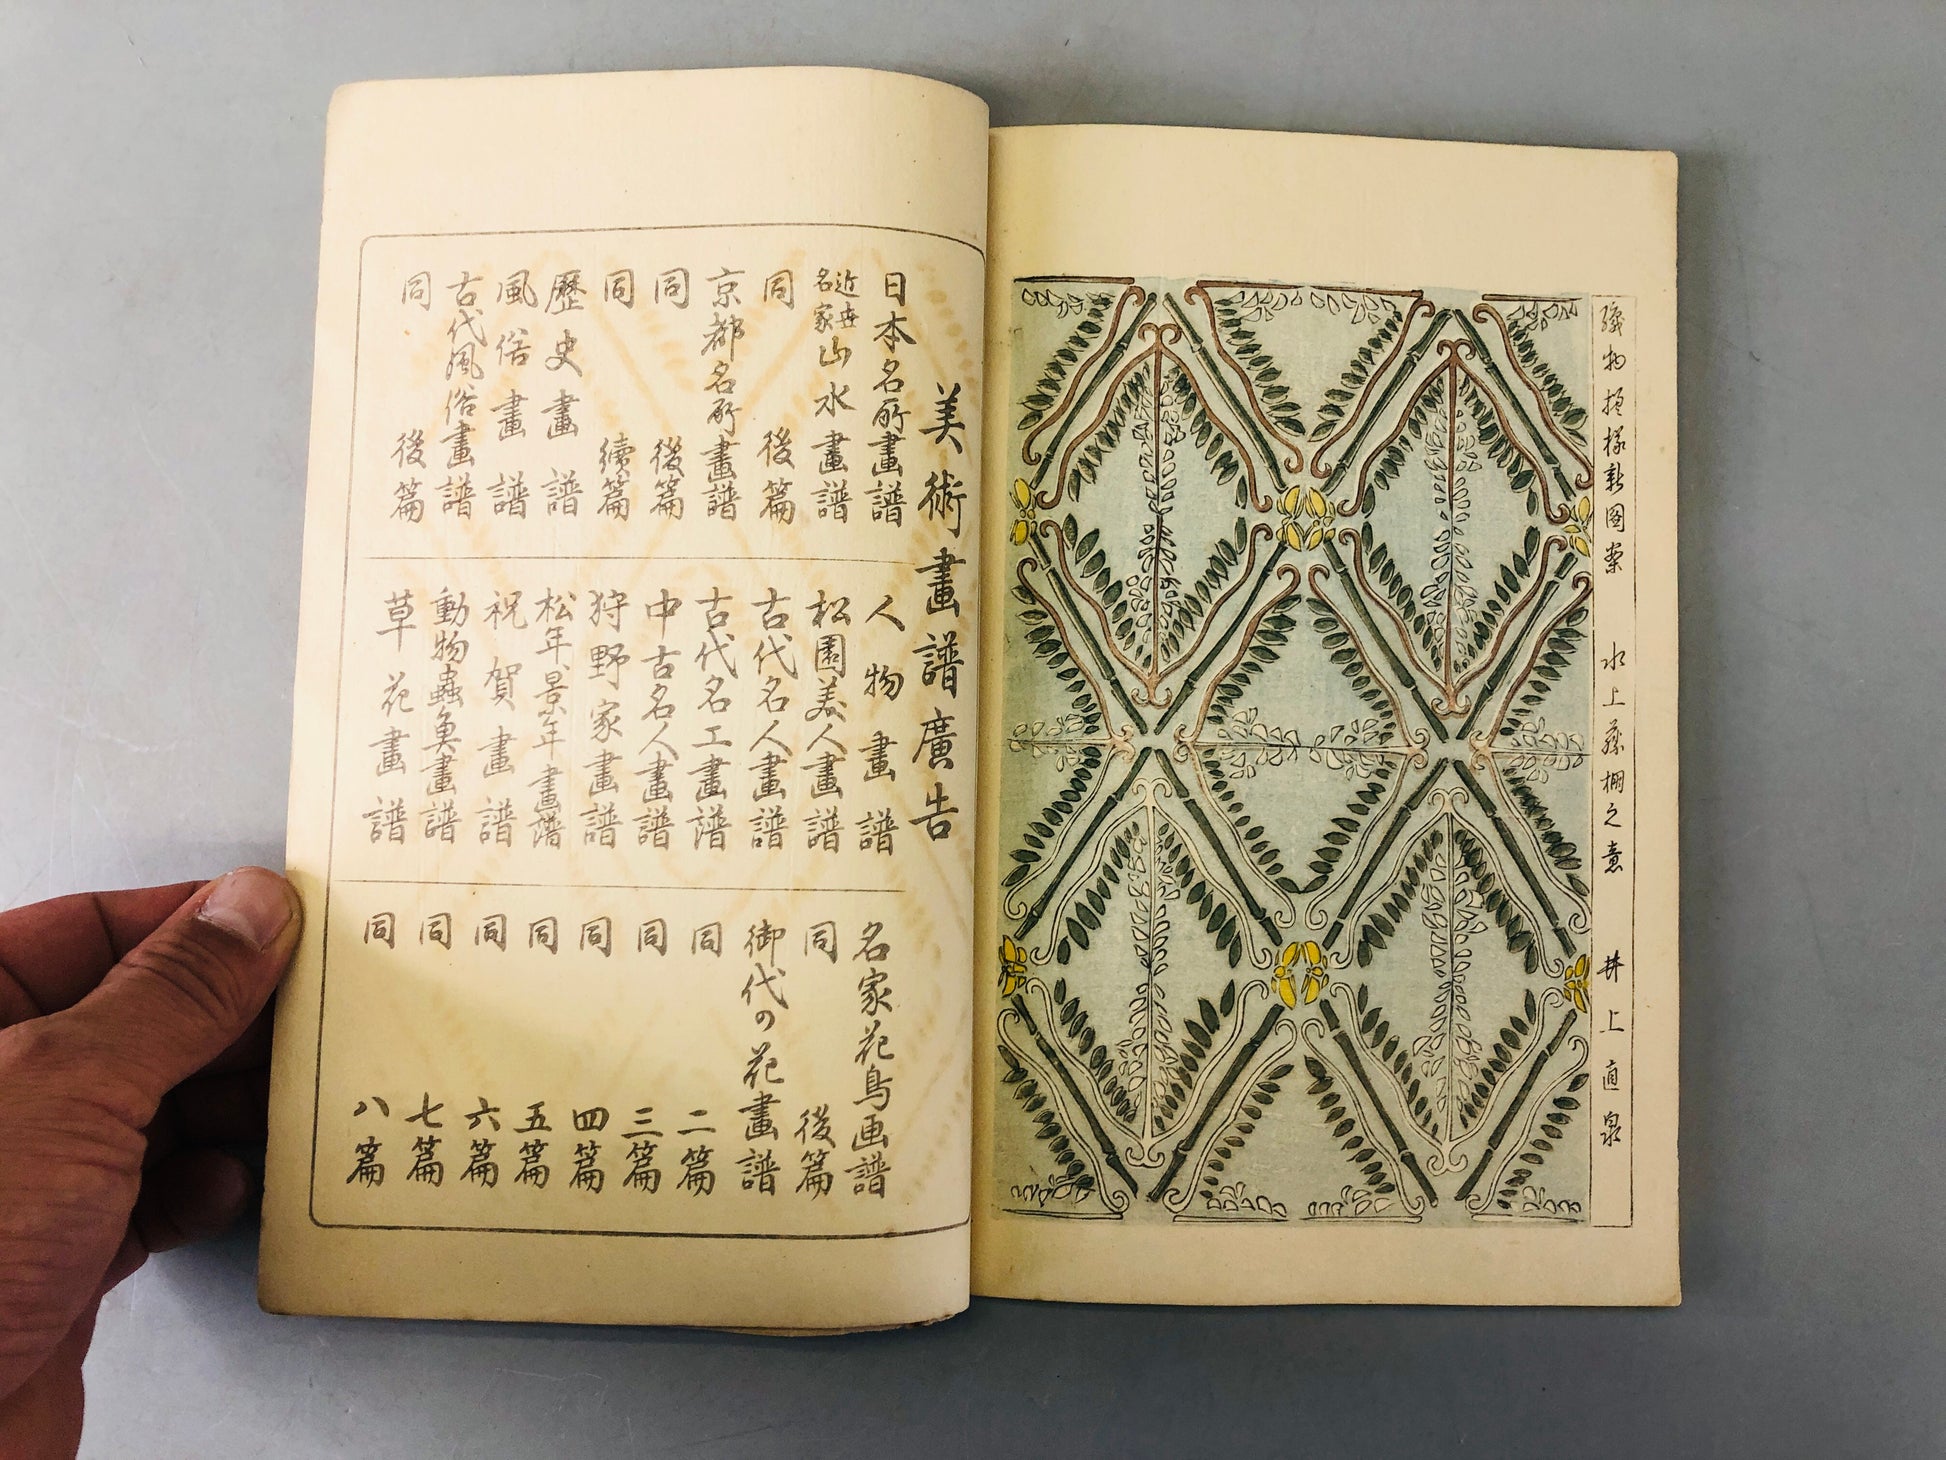 織物模様新圖案 水上藤棚之意 井上直泉
美術畫譜廣告
日本名所畫譜
近世名家山水畫譜
同 後篇
京都名所畫譜
同 後篇
同 續篇
歷史畫譜
風俗畫譜
古代風俗畫譜
同 後篇
人物畫譜
松園美人畫譜
古代名人畫譜
古代名工畫譜
中古名人畫譜
狩野家畫譜
松年景年畫譜
祝賀畫譜
動物蟲魚畫譜
草花畫譜
名家花鳥画譜
同 後篇
御代の花畫譜
同 二篇
同 三篇
同 四篇
同 五篇
同 六篇
同 七篇
同 八篇